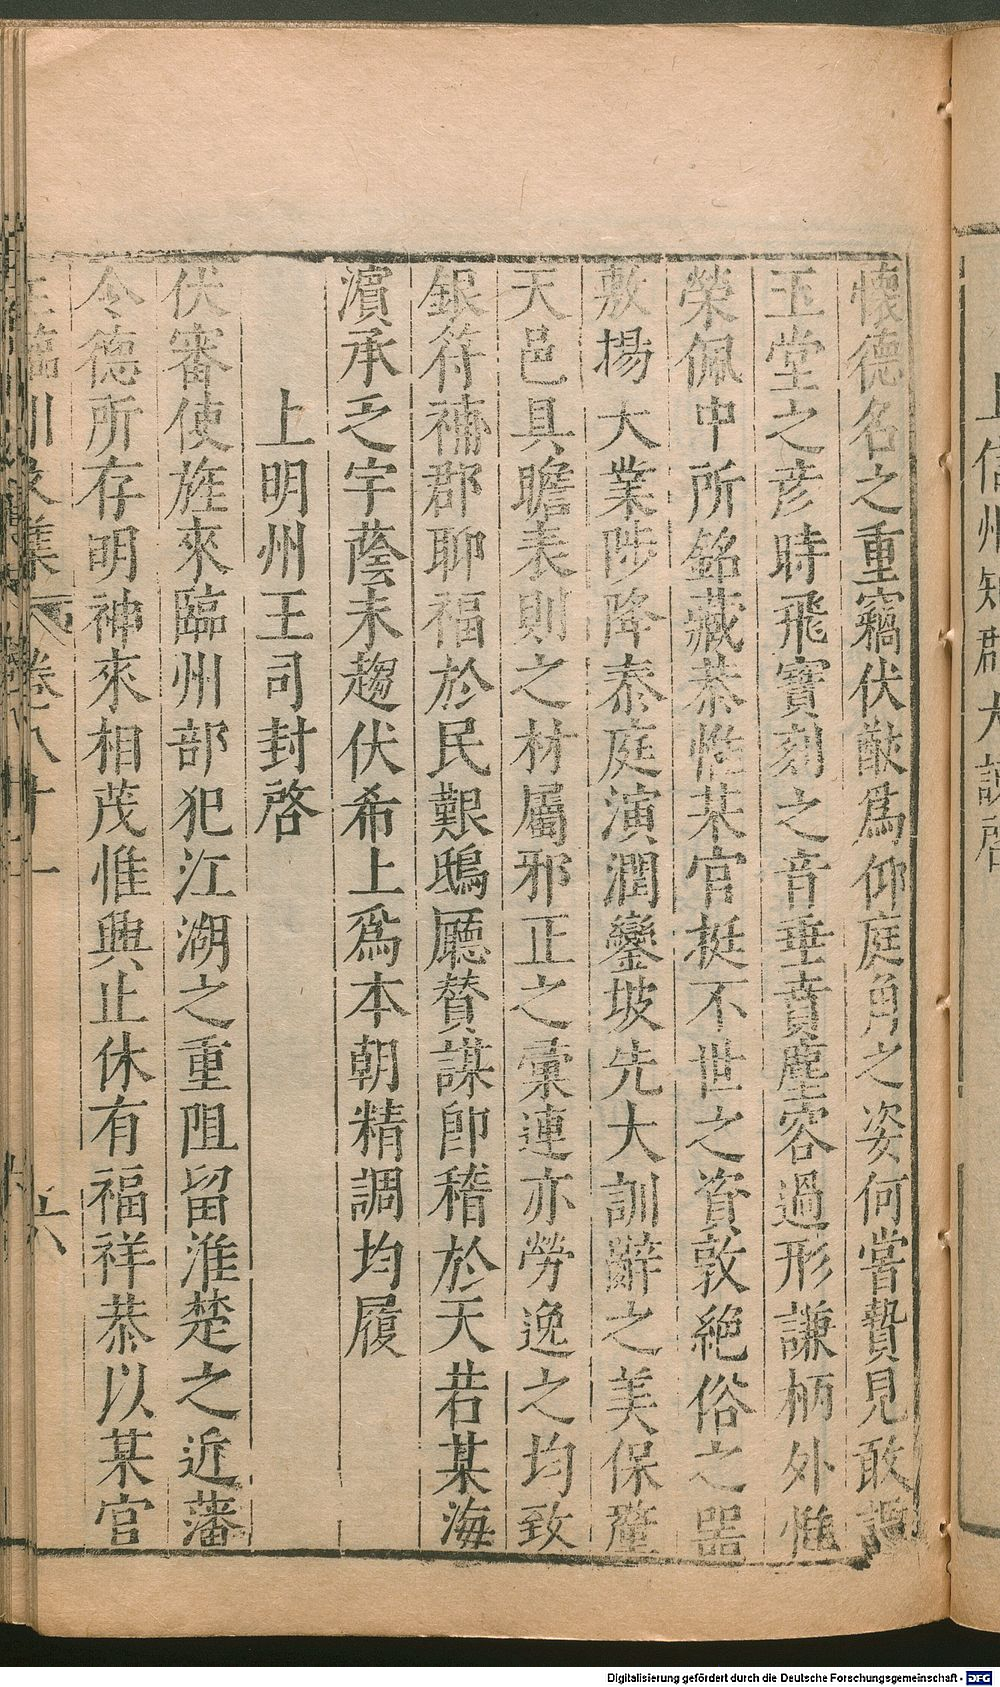 上信州知郡大諫啓
懷德名之重竊伏猷爲仰庭角之姿何嘗贄見敢謂
玉堂之彦時飛寶刻之音垂賁塵容過形謙柄外惟
榮佩中所銘藏恭惟某官挺不世之資敦絶俗之器
敷揚大業陟降泰庭演潤鑾坡先大訓辭之美保釐
天邑具瞻表則之材屬邪正之彚連亦勞逸之均致
銀符補郡聊福於民艱鴟廳賛謀卽稽於天若某海
濵承乏宇蔭未趨伏希上爲本朝精調均履
上明州王司封啓
伏審使旌來臨州部犯江湖之重阻留淮楚之近藩
令德所存明神來相茂惟興止休有福祥恭以某官
臨川文集 卷八十一 六
Digitalisierung gefördert durch die Deutsche Forschungsgemeinschaft - DFG